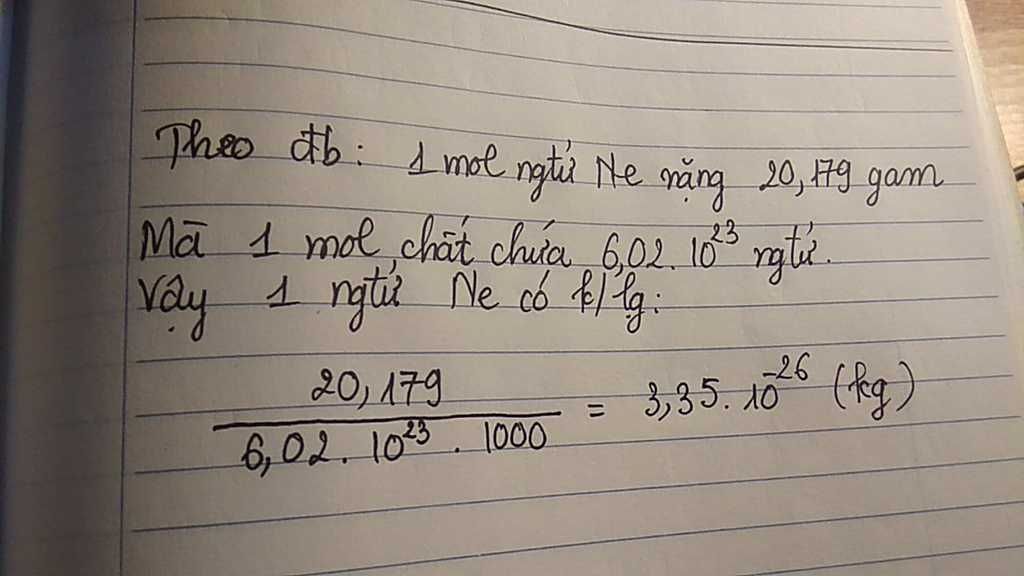 Theo đb: 1 mol ngtử Ne nặng 20,179 gam
Mà 1 mol chất chứa 6,02.10²³ ngtử.
Vậy 1 ngtử Ne có k/lg:
20,179
6,02.10²³.1000 = 3,35.10⁻²⁶ (kg)